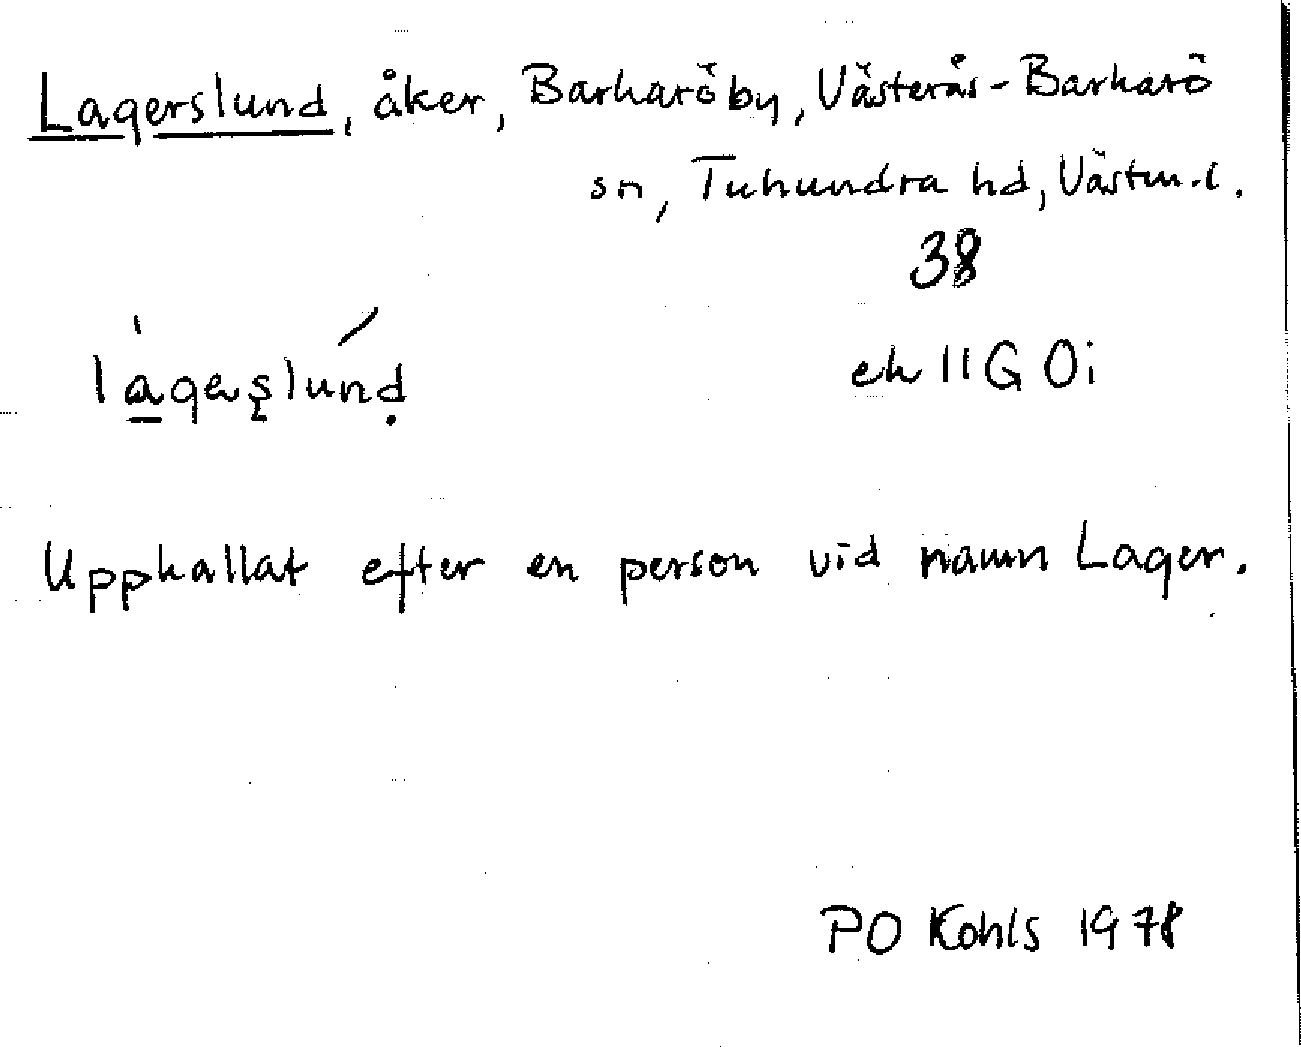 Lagerslund, åker, Barkaröby, Västerås-Barkarö
sn, Tuhundra hd, Västm.l.
38
ek 11G 0i
Upphallat efter en person vid namn Lager.
PO Kohls 1978